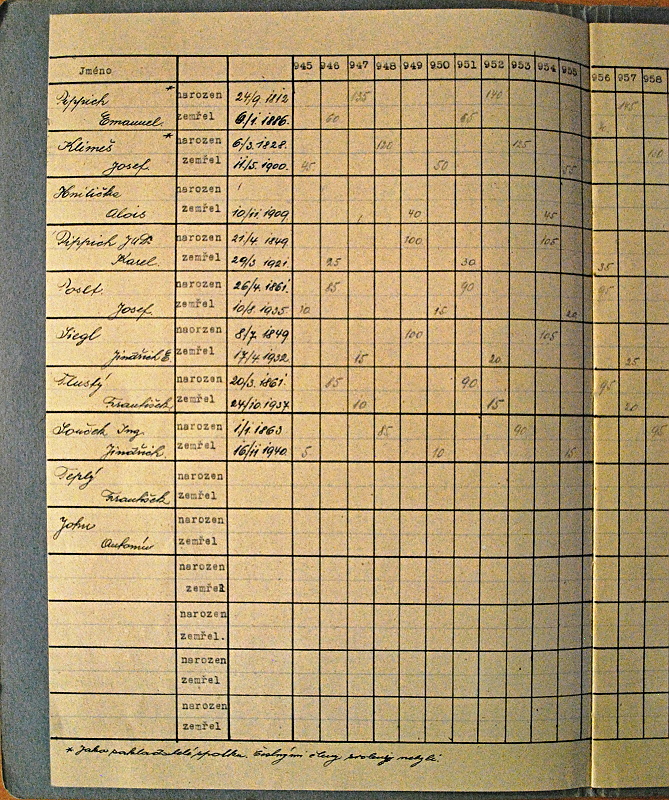 Jméno 945 946 947 948 949 950 951 952 953 954 955 956 957 958
Pippich * narozen 24/9. 1812 135 140 145
Emanuel zemřel 6/1. 1886. 60 65
Klimeš * narozen 6/3. 1828. 120 125 130
Josef. zemřel 11/5. 1900. 45 50 55
Hnilička narozen
Alois zemřel 10/11 1909 40 45
Pippich JUDr. narozen 21/4. 1849 100 105
Karel. zemřel 29/3 1921. 25 30 35
narozen 26/4. 1861. 85 90 95
Josef. zemřel 10/8. 1935. 10 15 20
Siegl naorzen 8/7. 1849 100 105
Jindřich E. zemřel 17/4. 1932. 15 20 25
Tlustý narozen 20/3. 1861. 85 90 95
František zemřel 24/10. 1937. 10 15 20
Souček Ing. narozen 1/1. 1863 85 90 95
Jindřich. zemřel 16/11 1940. 5 10 15
Teplý narozen
František zemřel
John narozen
Antonín zemřel
narozen
zemřel
narozen
zemřel.
narozen
zemřel
narozen
zemřel
* Jako zakladatelé spolku. Čestnými členy zvoleny nebyli.